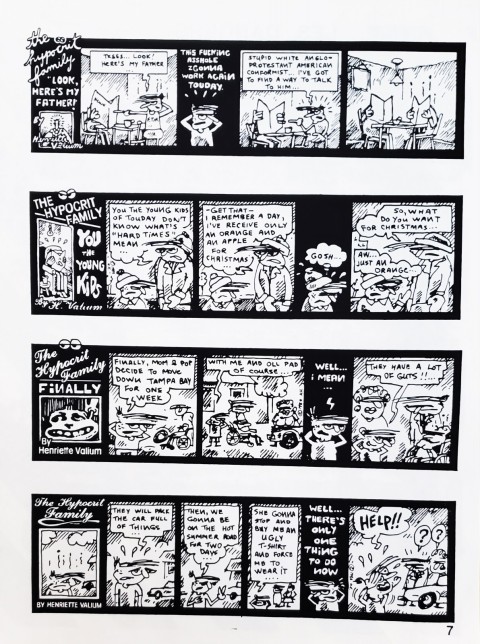 the
hypocrit
family
"LOOK,
HERE'S MY
FATHER!
By
Henriette
Valium
TABBS... LOOK!
HERE'S MY FATHER
THIS FUCKING
ASSHOLE
ZGONNA
WORK AGAIN
TOUDAY.
STUPID WHITE ANGLO-
PROTESTANT AMERICAN
CONFORMIST... I'VE GOT
TO FIND A WAY TO TALK
TO HIM...
THE
HYPOCRIT
FAMILY
YOU
THE
YOUNG
KIDS
By H. Valium
YOU THE YOUNG KIDS
OF TOUDAY DON'T
KNOW WHAT'S
"HARD TIMES"
MEAN...
-GET THAT-
I REMEMBER A DAY,
I'VE RECEIVE ONLY
AN ORANGE AND
AN APPLE
FOR
CHRISTMAS
GOSH...
SO, WHAT
DO YOU WANT
FOR CHRISTMAS...
AW...
JUST AN
ORANGE...
The
Hypocrit
Family
FINALLY
By
Henriette Valium
FINALLY, MOM & POP
DECIDE TO MOVE
DOWN TAMPA BAY
FOR ONE
WEEK
WITH ME AND OLL PAD
OF COURSE...
WELL...
I MEAN
...
THEY HAVE A LOT
OF GUTS!!...
The Hypocrit
Family
BY HENRIETTE VALIUM
THEY WILL PACK
THE CAR FULL
OF THINGS
THEN, WE
GONNA BE
ON THE HOT
SUMMER ROAD
FOR TWO
DAYS
SHE GONNA
STOP AND
BUY ME AN
UGLY
T-SHIRT
AND FORCE
ME TO
WEAR IT
...
WELL...
THERE'S
ONLY
ONE
THING
TO DO
NOW
HELP!!
? ?
7